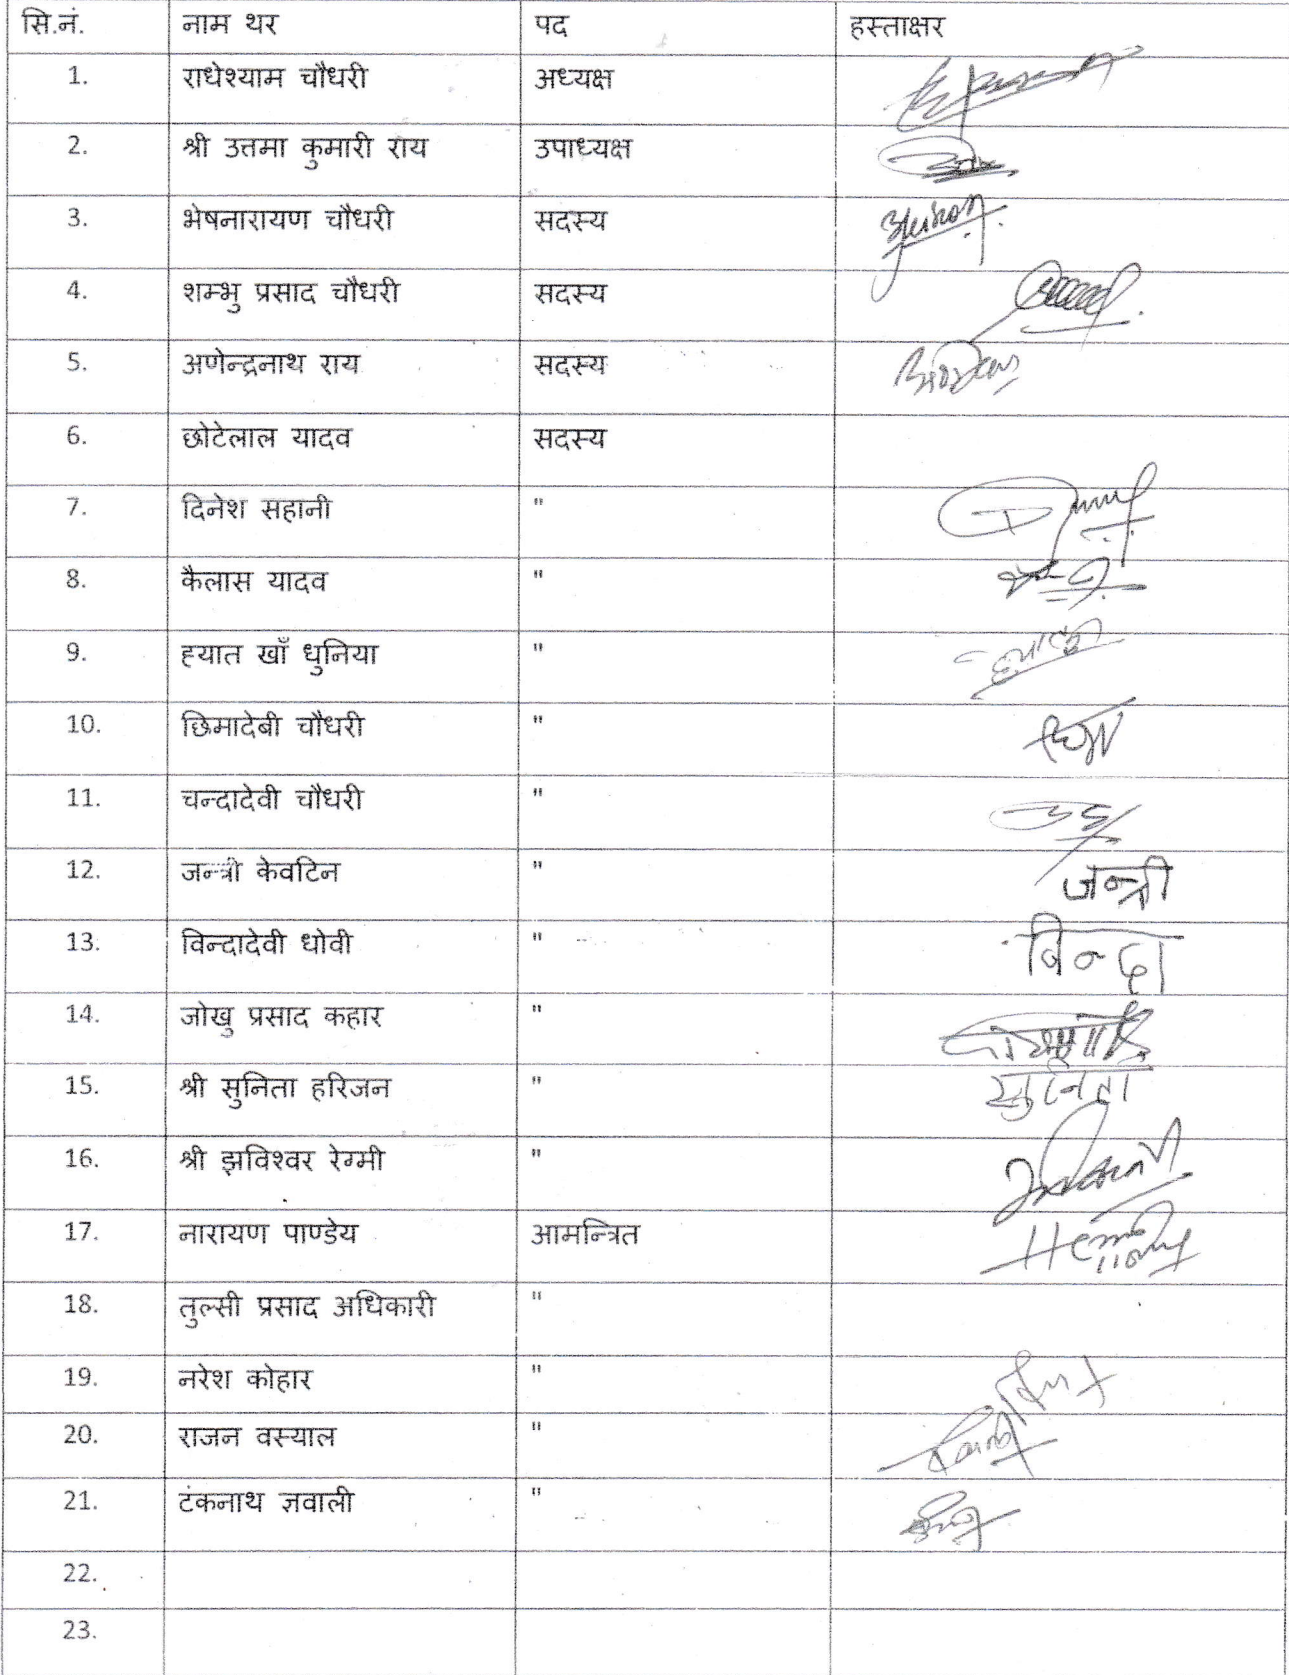 सि.नं. नाम थर पद हस्ताक्षर
1. राधेश्याम चौधरी अध्यक्ष
2. श्री उत्तमा कुमारी राय उपाध्यक्ष
3. भेषनारायण चौधरी सदस्य
4. शम्भु प्रसाद चौधरी सदस्य
5. अणेन्द्रनाथ राय सदस्य
6. छोटेलाल यादव सदस्य
7. दिनेश सहानी "
8. कैलास यादव "
9. ह्यात खाँ धुनिया "
10. छिमादेबी चौधरी "
11. चन्दादेवी चौधरी "
12. जन्त्री केवटिन " जन्त्री
13. विन्दादेवी धोवी " विन्दा
14. जोखु प्रसाद कहार "
15. श्री सुनिता हरिजन " सुनिता
16. श्री झविश्वर रेग्मी "
17. नारायण पाण्डेय आमन्त्रित
18. तुल्सी प्रसाद अधिकारी "
19. नरेश कोहार "
20. राजन वस्याल "
21. टंकनाथ ज्ञवाली "
22.
23.